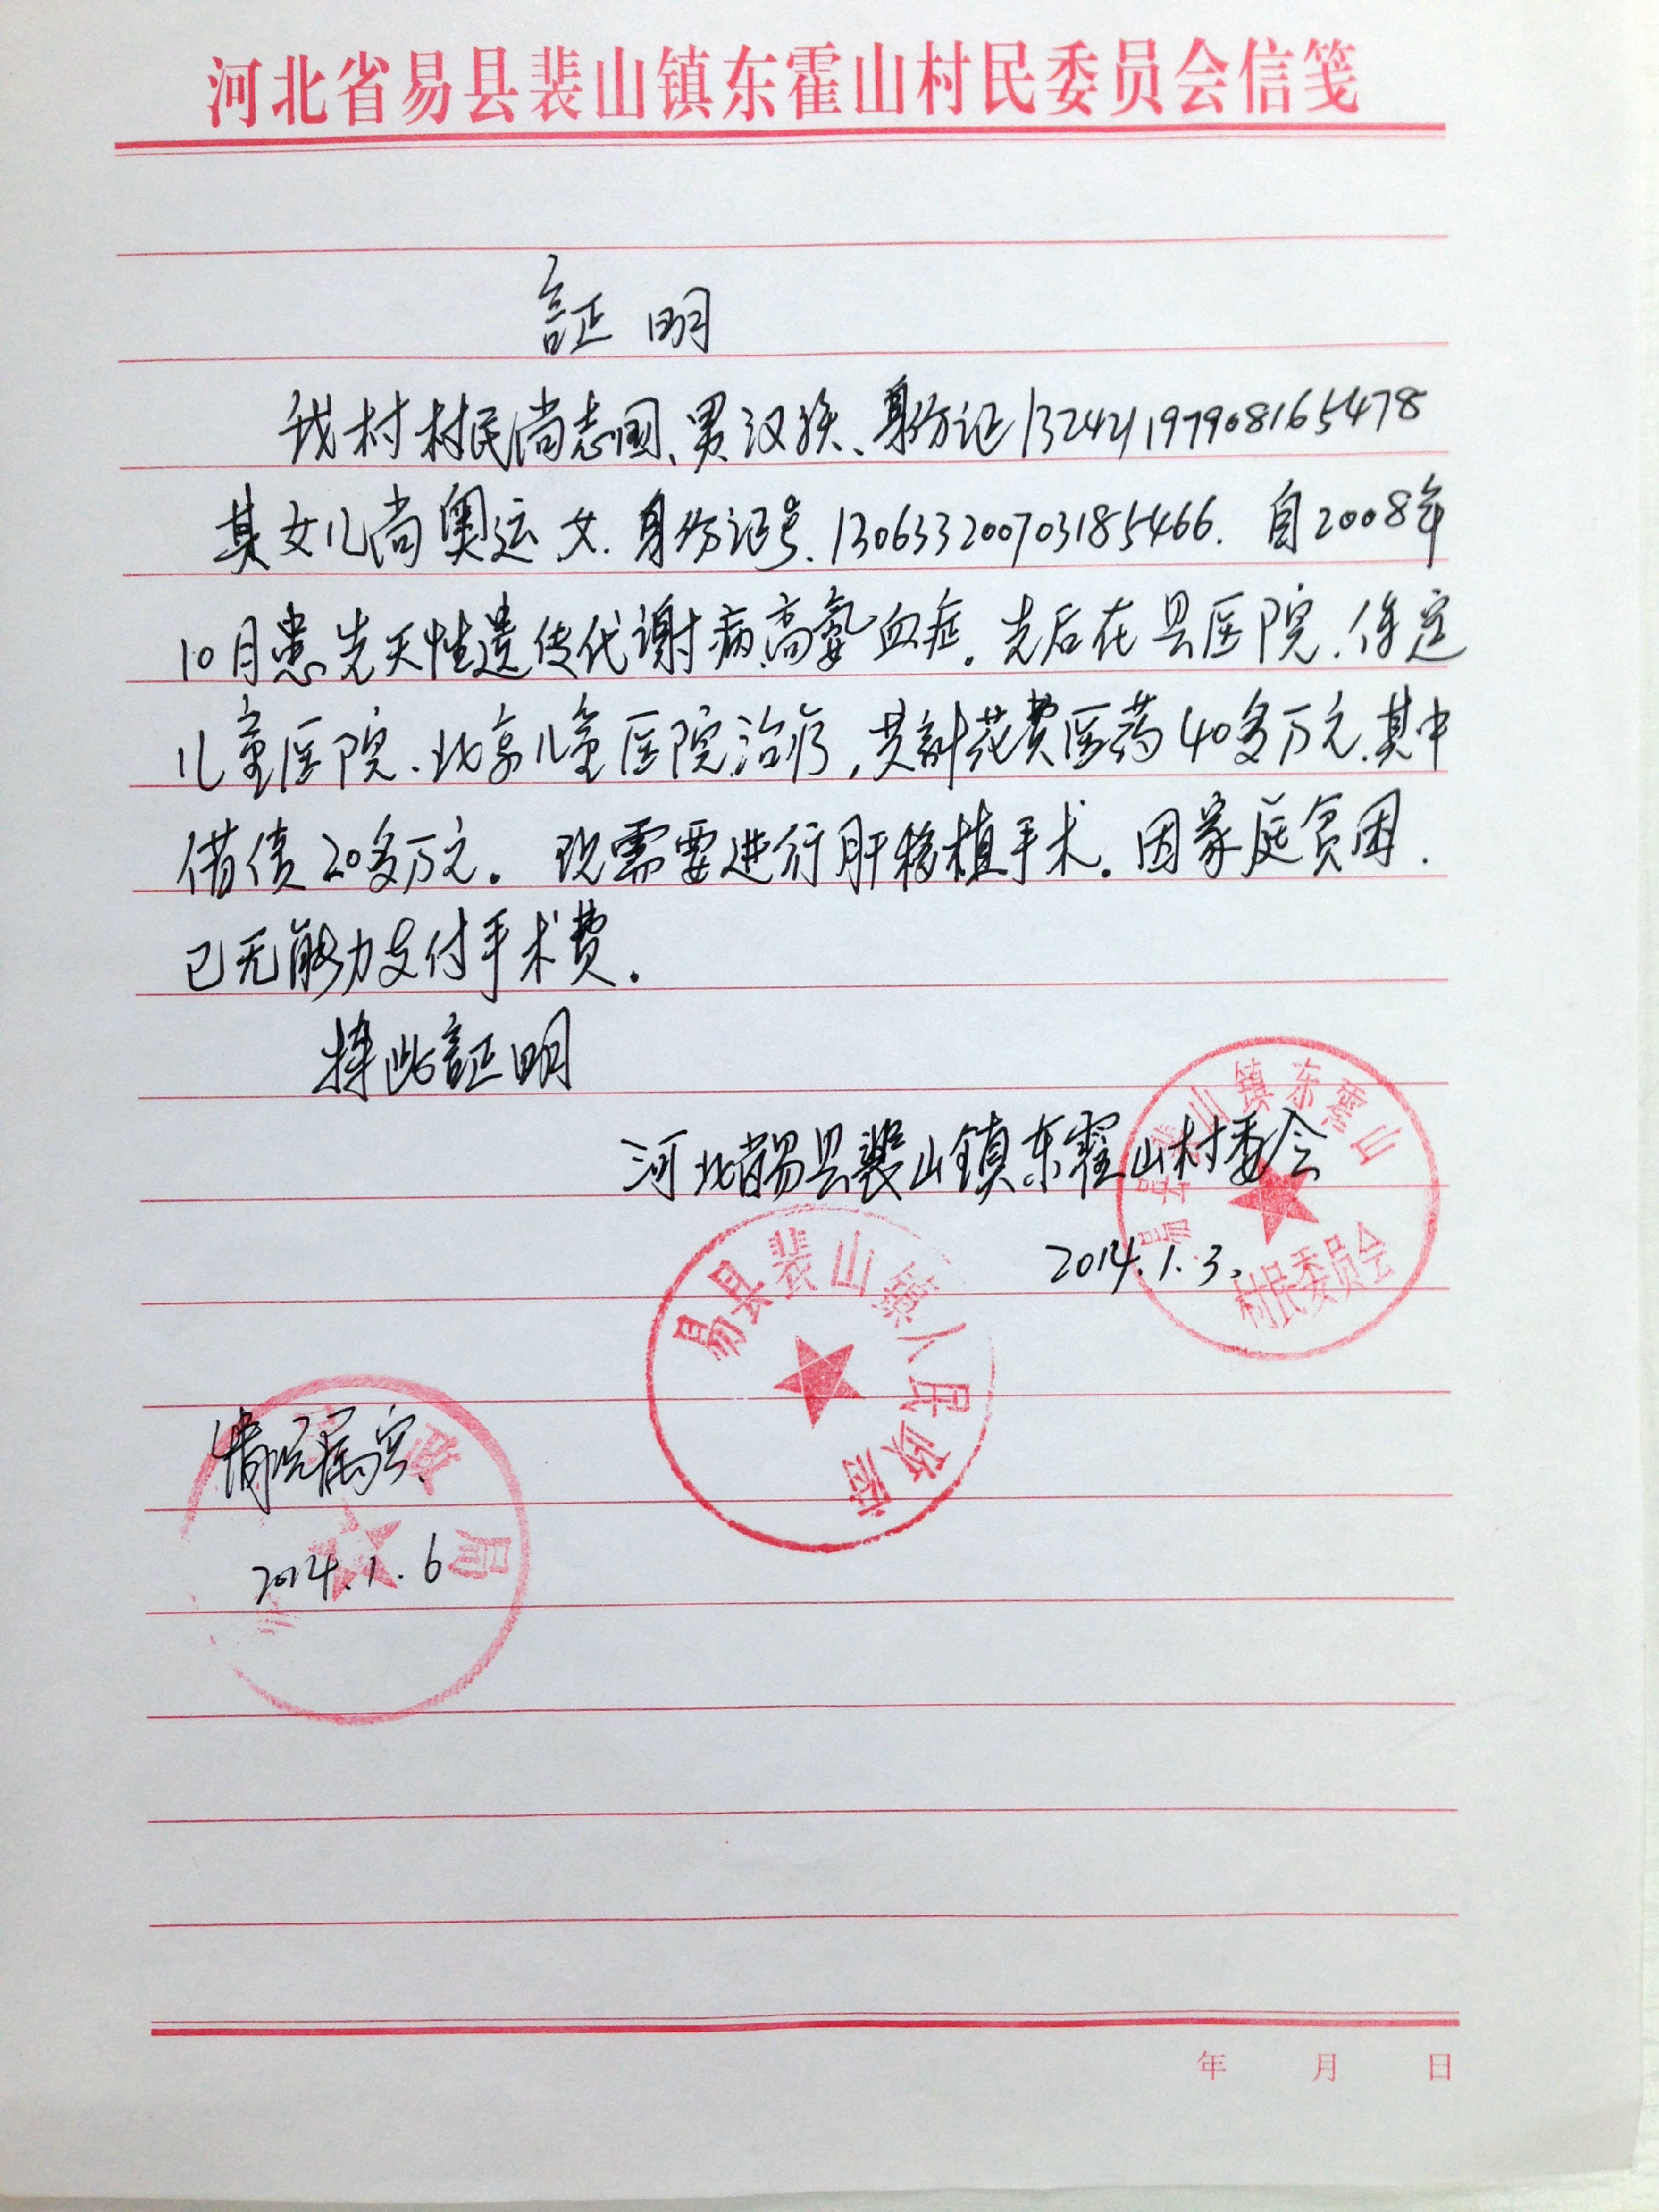 河北省易县裴山镇东霍山村民委员会信笺
証明
我村村民尚志国、男汉族、身份证132421197908165478
其女儿尚奥运 女.身份证号.130633200703185466. 自2008年
10月患先天性遗传代谢病高氨血症。先后在县医院.保定
儿童医院.北京儿童医院治疗,共計花费医药40多万元.其中
借债20多万元。现需要进行肝移植手术。因家庭贫困.
已无能力支付手术费。
特此証明
河北省易县裴山镇东霍山村委会
易县裴山镇东霍山
村民委员会
2014.1.3.
易县裴山镇人民政府
情况属实
政局
2014.1.6
年 月 日